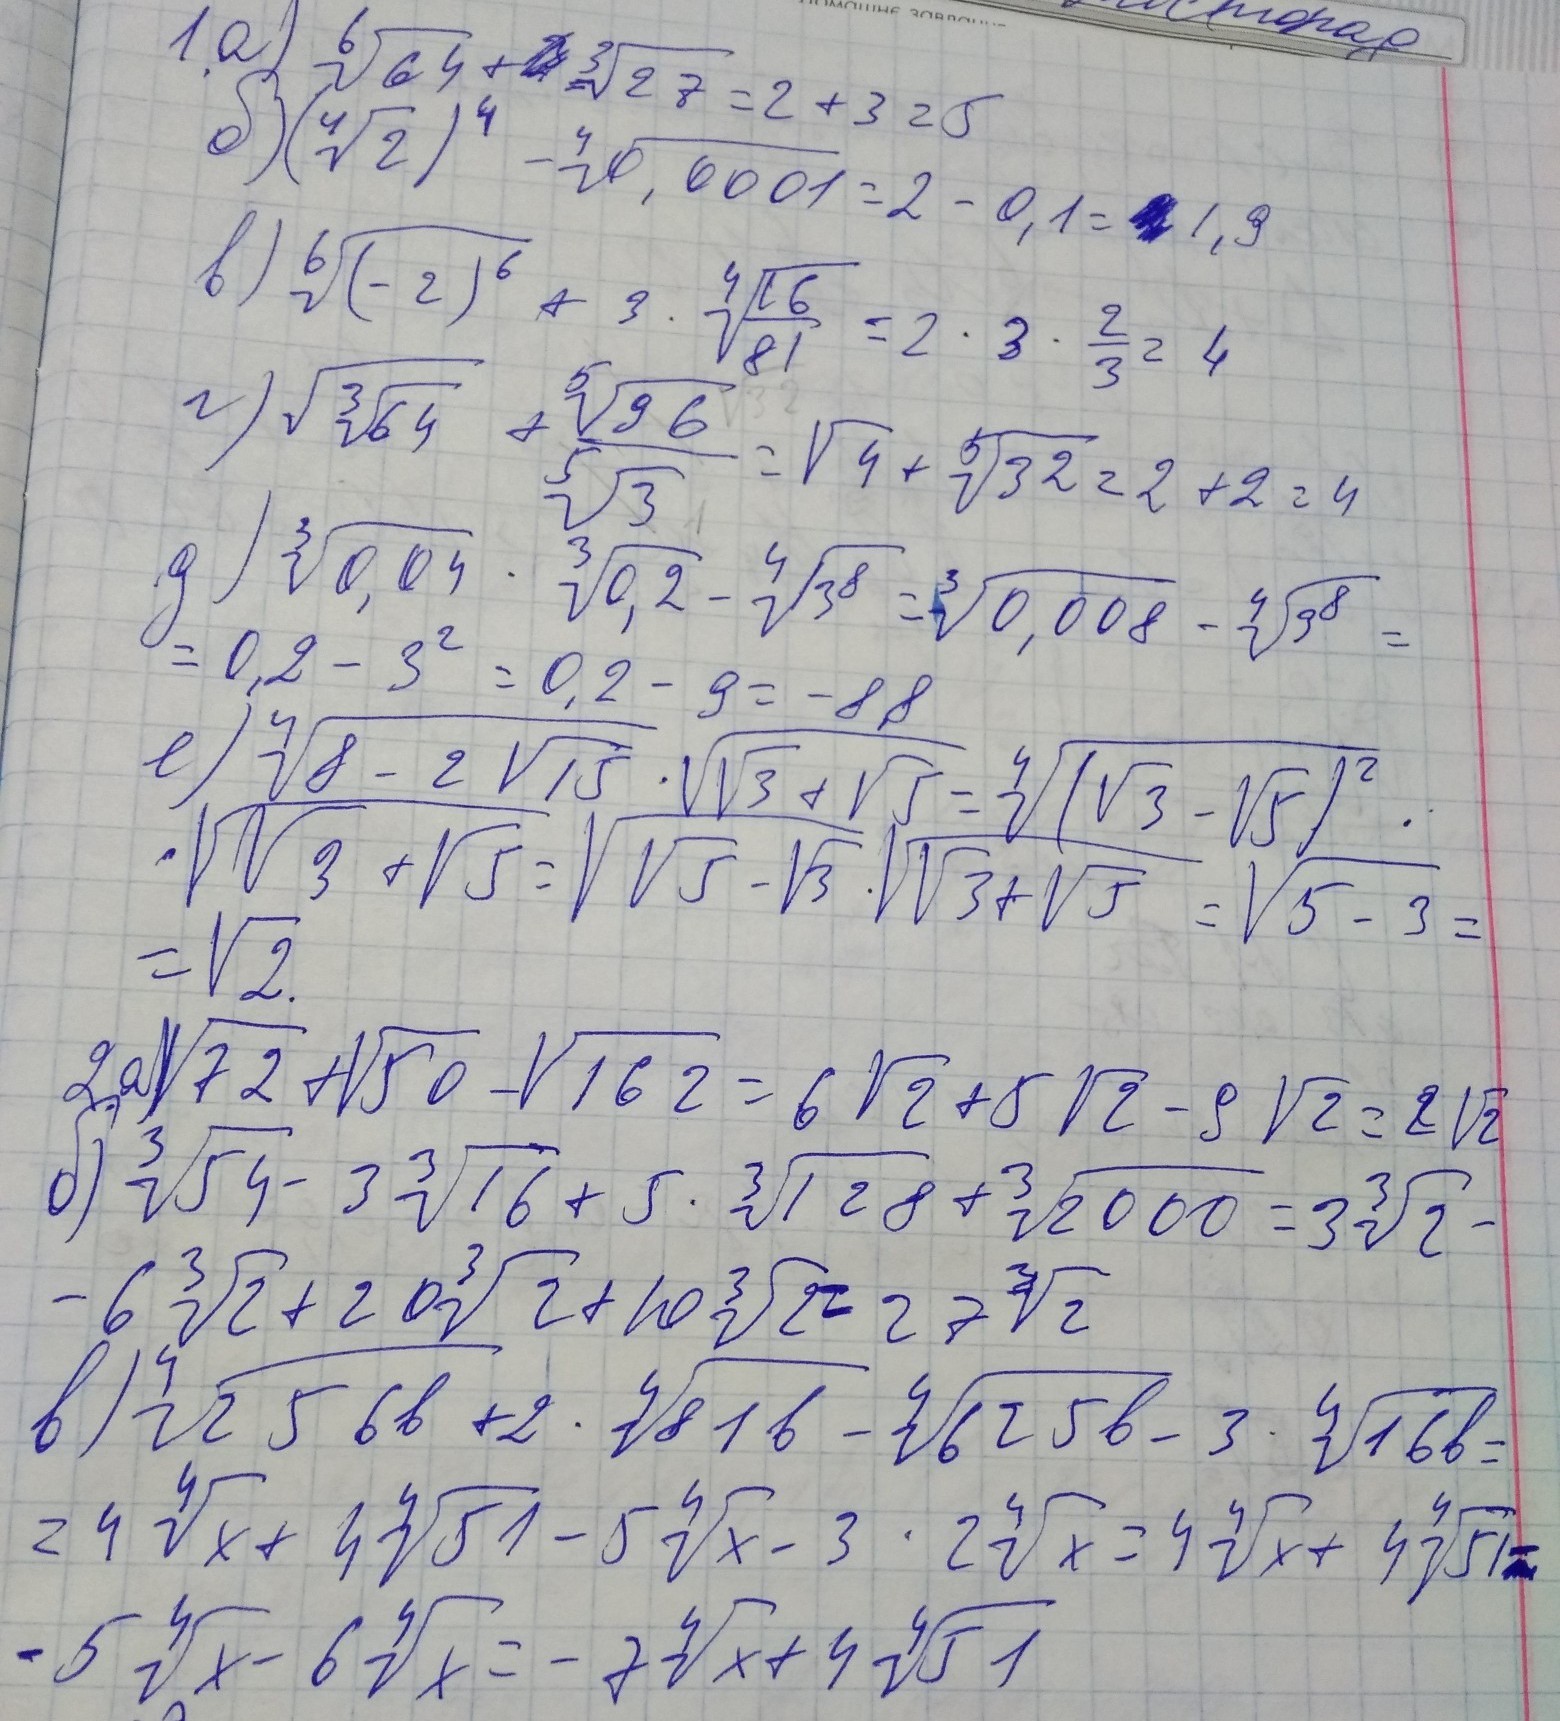 Домашнє завдання
1.а) ⁶√64 + ³√27 = 2 + 3 = 5
б) (⁴√2)⁴ - ⁴√0,0001 = 2 - 0,1 = 1,9
в) ⁶√(-2)⁶ + 3 · ⁴√16/81 = 2 · 3 · 2/3 = 4
г) √³√64 + ⁵√96/⁵√3 = √4 + ⁵√32 = 2 + 2 = 4
д) ³√0,04 · ³√0,2 - ⁴√3⁸ = ³√0,008 - ⁴√3⁸ =
= 0,2 - 3² = 0,2 - 9 = -8,8
е) ⁴√8 - 2√15 · √√3 + √5 = ⁴√(√3 - √5)² ·
· √√3 + √5 = √√5 - √3 · √√3 + √5 = √5 - 3 =
= √2.
2.а) √72 + √50 - √162 = 6√2 + 5√2 - 9√2 = 2√2
б) ³√54 - 3³√16 + 5 · ³√128 + ³√2000 = 3³√2 -
- 6³√2 + 20³√2 + 10³√2 = 27³√2
в) ⁴√256b + 2 · ⁴√81b - ⁴√625b - 3 · ⁴√16b =
= 4⁴√x + 4⁴√51 - 5⁴√x - 3 · 2⁴√x = 4⁴√x + 4⁴√51 -
- 5⁴√x - 6⁴√x = - 7⁴√x + 4⁴√51